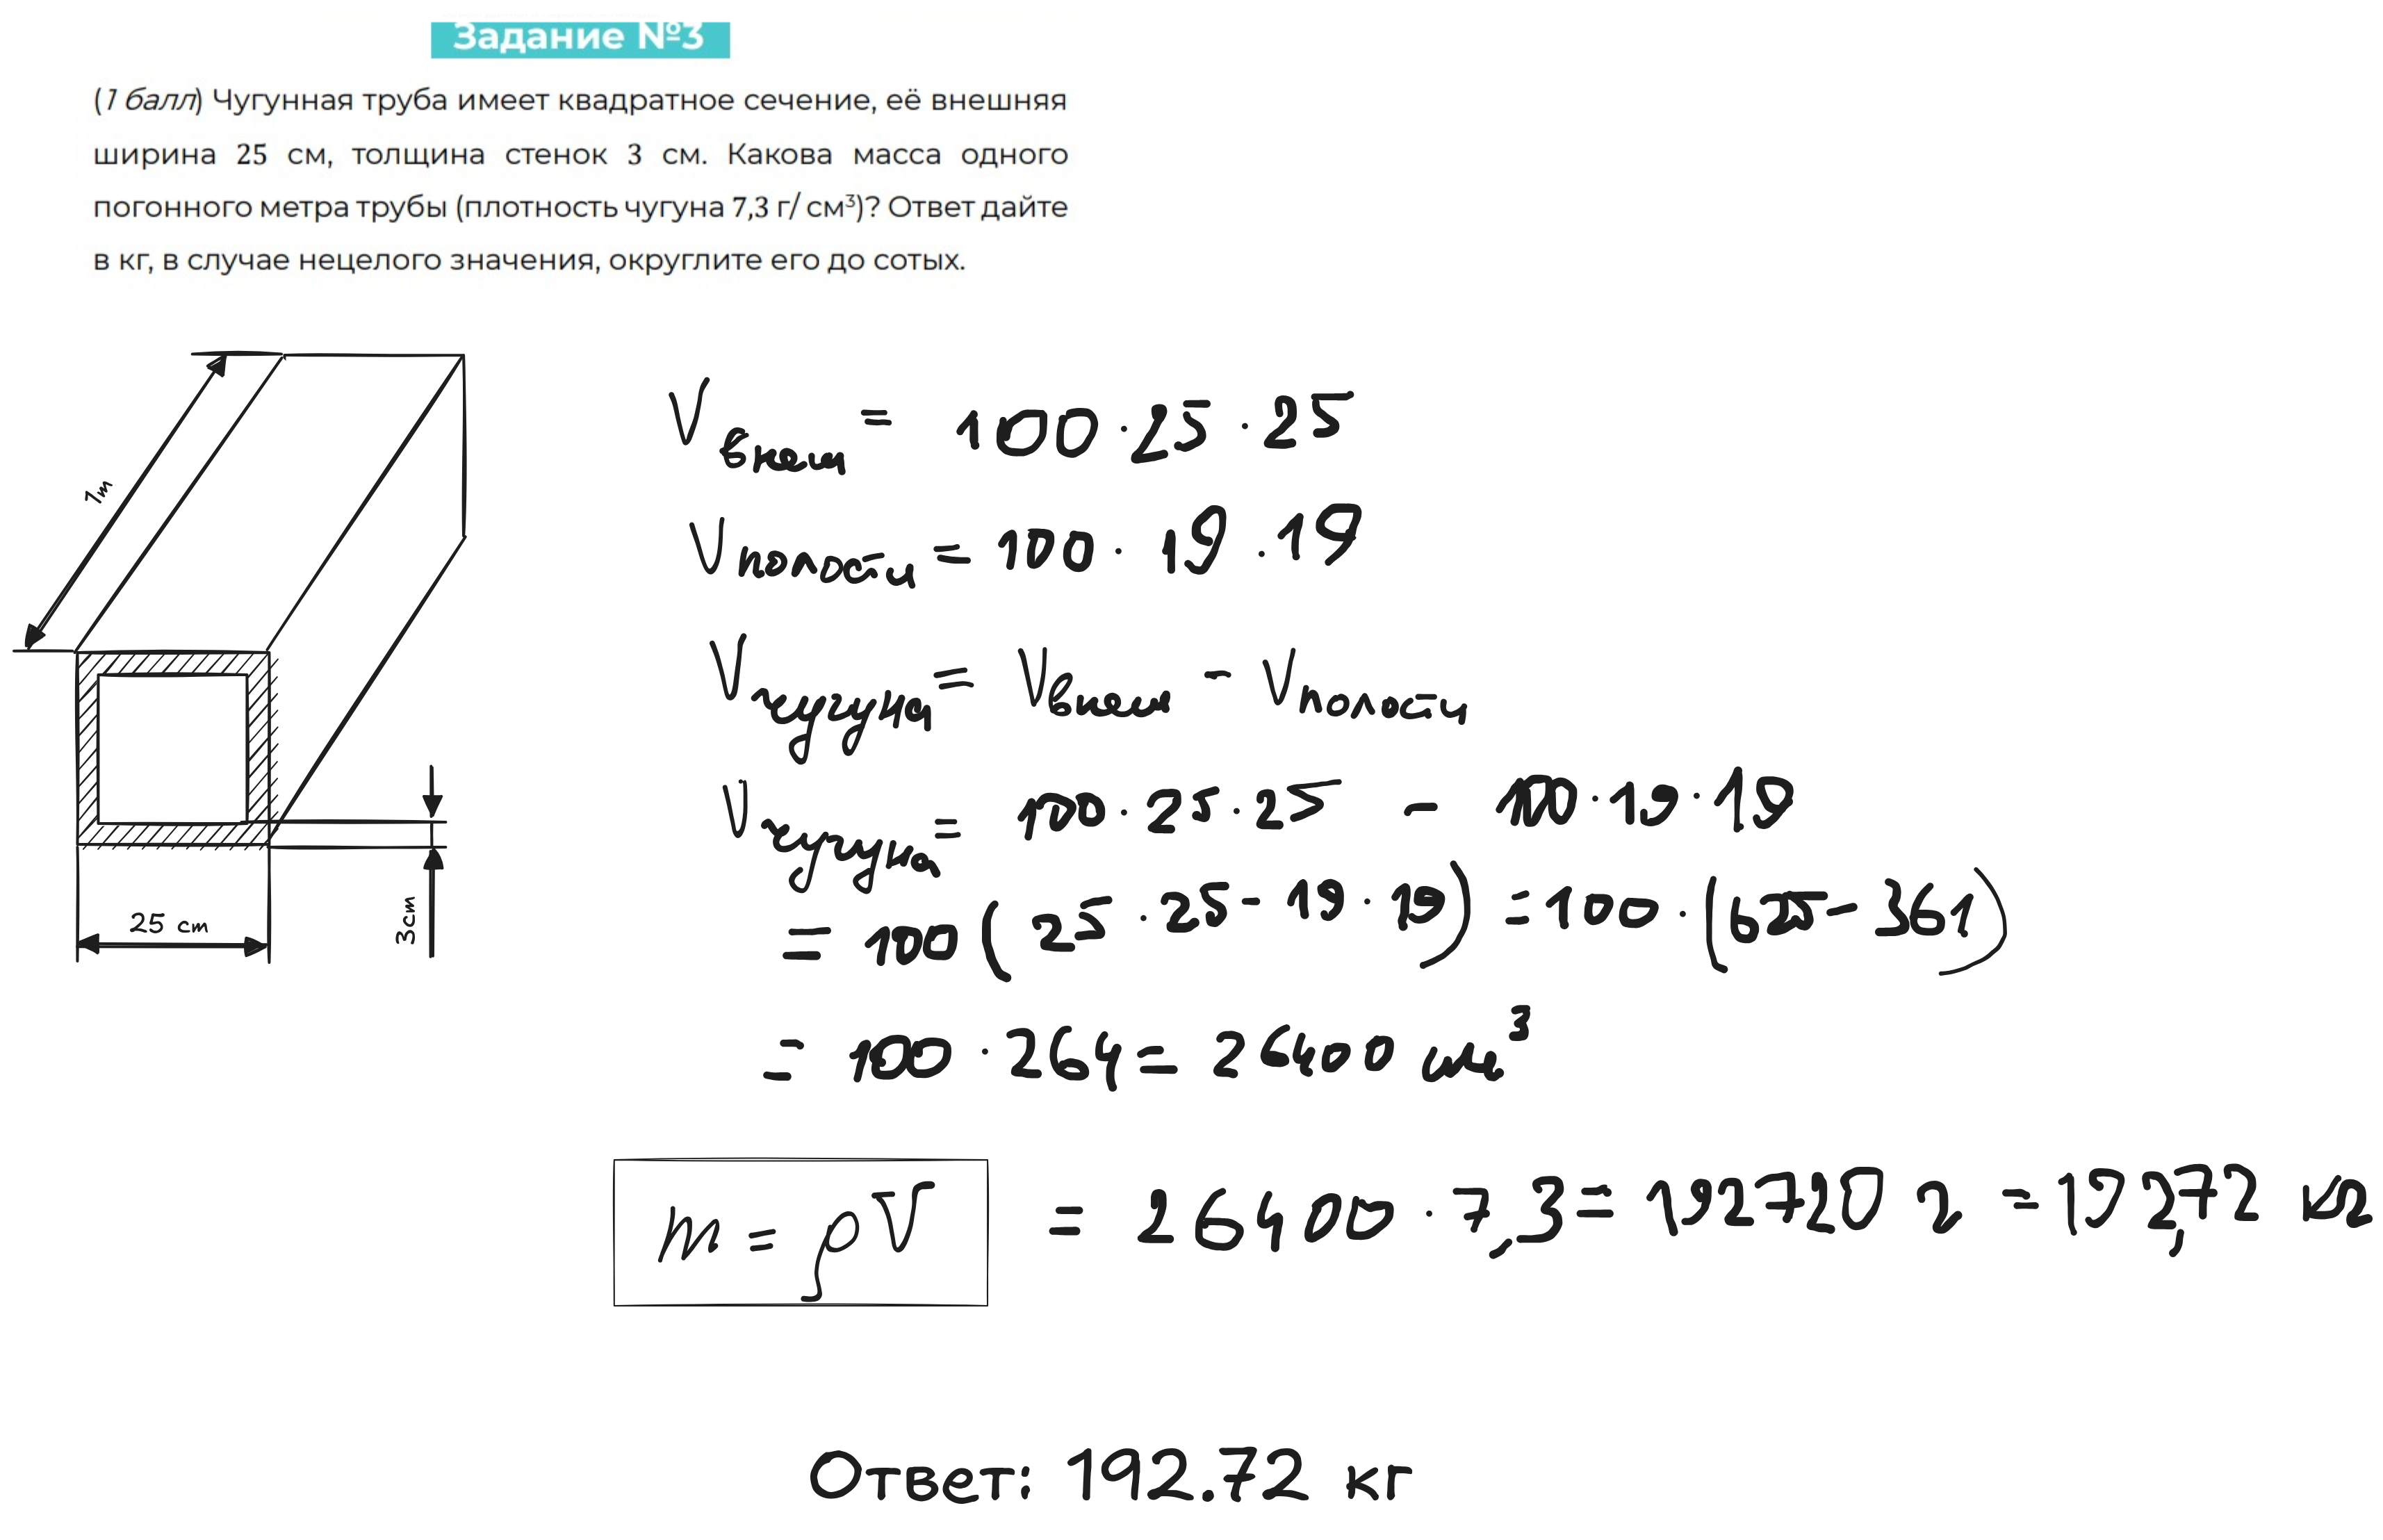 Задание №3
(1 балл) Чугунная труба имеет квадратное сечение, её внешняя
ширина 25 см, толщина стенок 3 см. Какова масса одного
погонного метра трубы (плотность чугуна 7,3 г/ см³)? Ответ дайте
в кг, в случае нецелого значения, округлите его до сотых.
1m
25 cm
3cm
V внеш = 100 · 25 · 25
V полости = 100 · 19 · 19
V чугуна = V внеш - V полости
V чугуна = 100 · 25 · 25 - 100 · 19 · 19
= 100 ( 25 · 25 - 19 · 19 ) = 100 · (625 - 361)
= 100 · 264 = 26400 см³
m = ρV = 26400 · 7,3 = 192720 г = 192,72 кг
Ответ: 192.72 кг